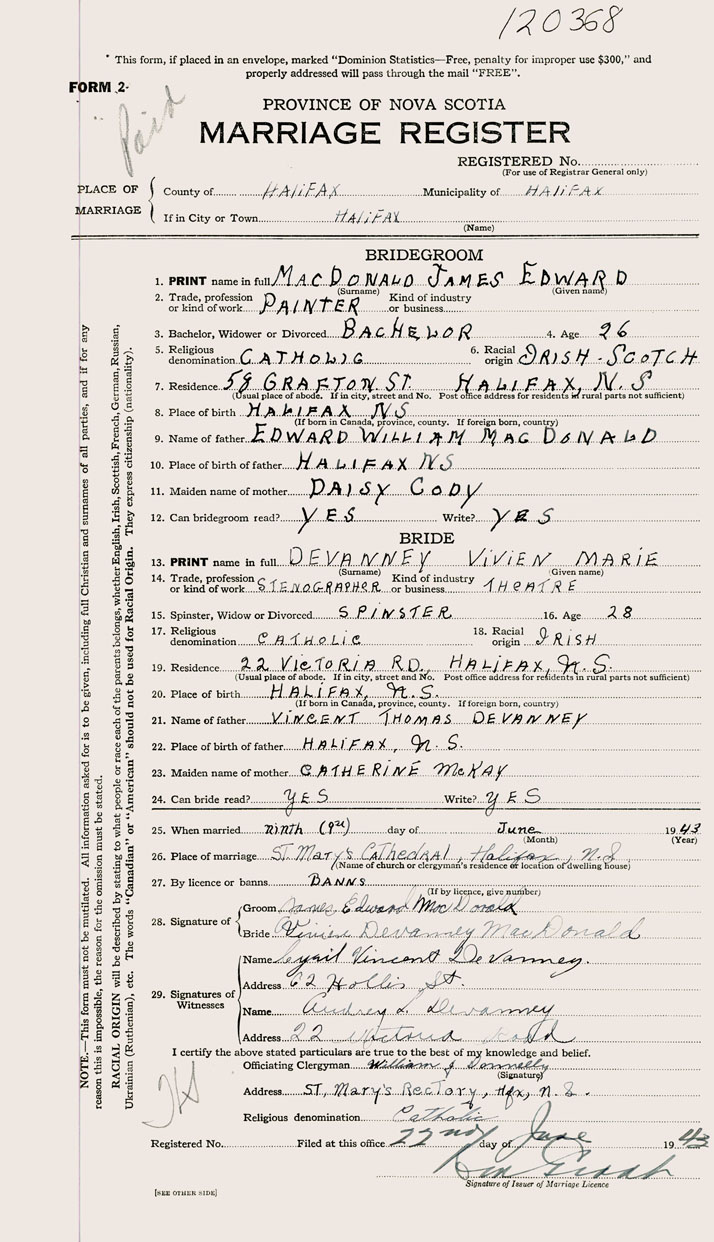 120368
* This form, if placed in an envelope, marked "Dominion Statistics—Free, penalty for improper use $300," and
properly addressed will pass through the mail "FREE".
FORM 2-
Paid
PROVINCE OF NOVA SCOTIA
MARRIAGE REGISTER
REGISTERED No.
(For use of Registrar General only)
PLACE OF MARRIAGE
County of HALIFAX Municipality of HALIFAX
If in City or Town HALIFAX
(Name)
BRIDEGROOM
1. PRINT name in full MACDONALD JAMES EDWARD
(Surname) (Given name)
2. Trade, profession or kind of work PAINTER Kind of industry or business
3. Bachelor, Widower or Divorced BACHELOR 4. Age 26
5. Religious denomination CATHOLIC 6. Racial origin IRISH-SCOTCH
7. Residence 58 GRAFTON ST. HALIFAX, N.S
(Usual place of abode. If in city, street and No. Post office address for residents in rural parts not sufficient)
8. Place of birth HALIFAX NS
(If born in Canada, province, county. If foreign born, country)
9. Name of father EDWARD WILLIAM MACDONALD
10. Place of birth of father HALIFAX NS
11. Maiden name of mother DAISY CODY
12. Can bridegroom read? YES Write? YES
BRIDE
13. PRINT name in full DEVANNEY VIVIEN MARIE
(Surname) (Given name)
14. Trade, profession or kind of work STENOGRAPHER Kind of industry or business THEATRE
15. Spinster, Widow or Divorced SPINSTER 16. Age 28
17. Religious denomination CATHOLIC 18. Racial origin IRISH
19. Residence 22 VICTORIA RD. HALIFAX, N.S.
(Usual place of abode. If in city, street and No. Post office address for residents in rural parts not sufficient)
20. Place of birth HALIFAX, N.S.
(If born in Canada, province, county. If foreign born, country)
21. Name of father VINCENT THOMAS DEVANNEY
22. Place of birth of father HALIFAX, N.S.
23. Maiden name of mother CATHERINE McKAY
24. Can bride read? YES Write? YES
25. When married ninth (9th) day of June 1943
(Month) (Year)
26. Place of marriage St Mary's Cathedral, Halifax, N.S.
(Name of church or clergyman's residence or location of dwelling house)
27. By licence or banns BANNS
(If by licence, give number)
28. Signature of
Groom James Edward MacDonald
Bride Vivien Devanney MacDonald
29. Signatures of Witnesses
Name Cyril Vincent DeVanney.
Address 62 Hollis St.
Name Audrey L. Devanney
Address 22 Victoria Road
I certify the above stated particulars are true to the best of my knowledge and belief.
Officiating Clergyman William J Donnelly
(Signature)
Address ST. Mary's Rectory, Hfx, N.S.
Religious denomination Catholic
Registered No. Filed at this office 22nd day of June 1943
Signature of Issuer of Marriage Licence
[SEE OTHER SIDE]
NOTE.—This form must not be mutilated. All information asked for is to be given, including full Christian and surnames of all parties, and if for any
reason this is impossible, the reason for the omission must be stated.
RACIAL ORIGIN will be described by stating to what people or race each of the parents belongs, whether English, Irish, Scottish, French, German, Russian,
Ukrainian (Ruthenian), etc. The words "Canadian" or "American" should not be used for Racial Origin. They express citizenship (nationality).